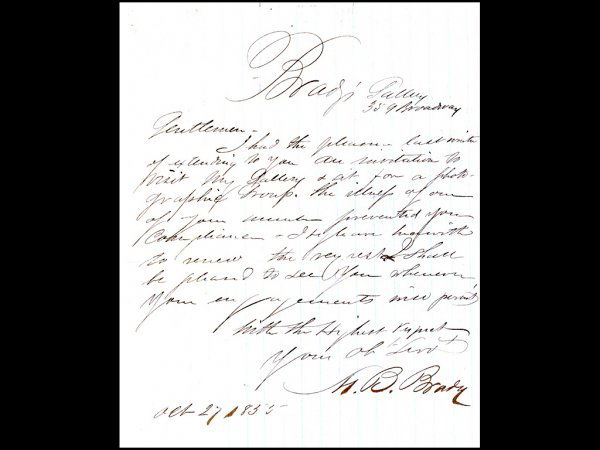 Brady's Gallery
359 Broadway
Gentlemen -
I had the pleasure last
of extending to you an invitation to
visit my Gallery & sit for a photo-
graphic Group. The illness of one
of your prevented your
Compliance - I herewith
to renew the request & shall
be pleased to see you whenever
your engagements will permit
With the Highest respect
Your ob Servt
M. B. Brady
Oct 27 1855